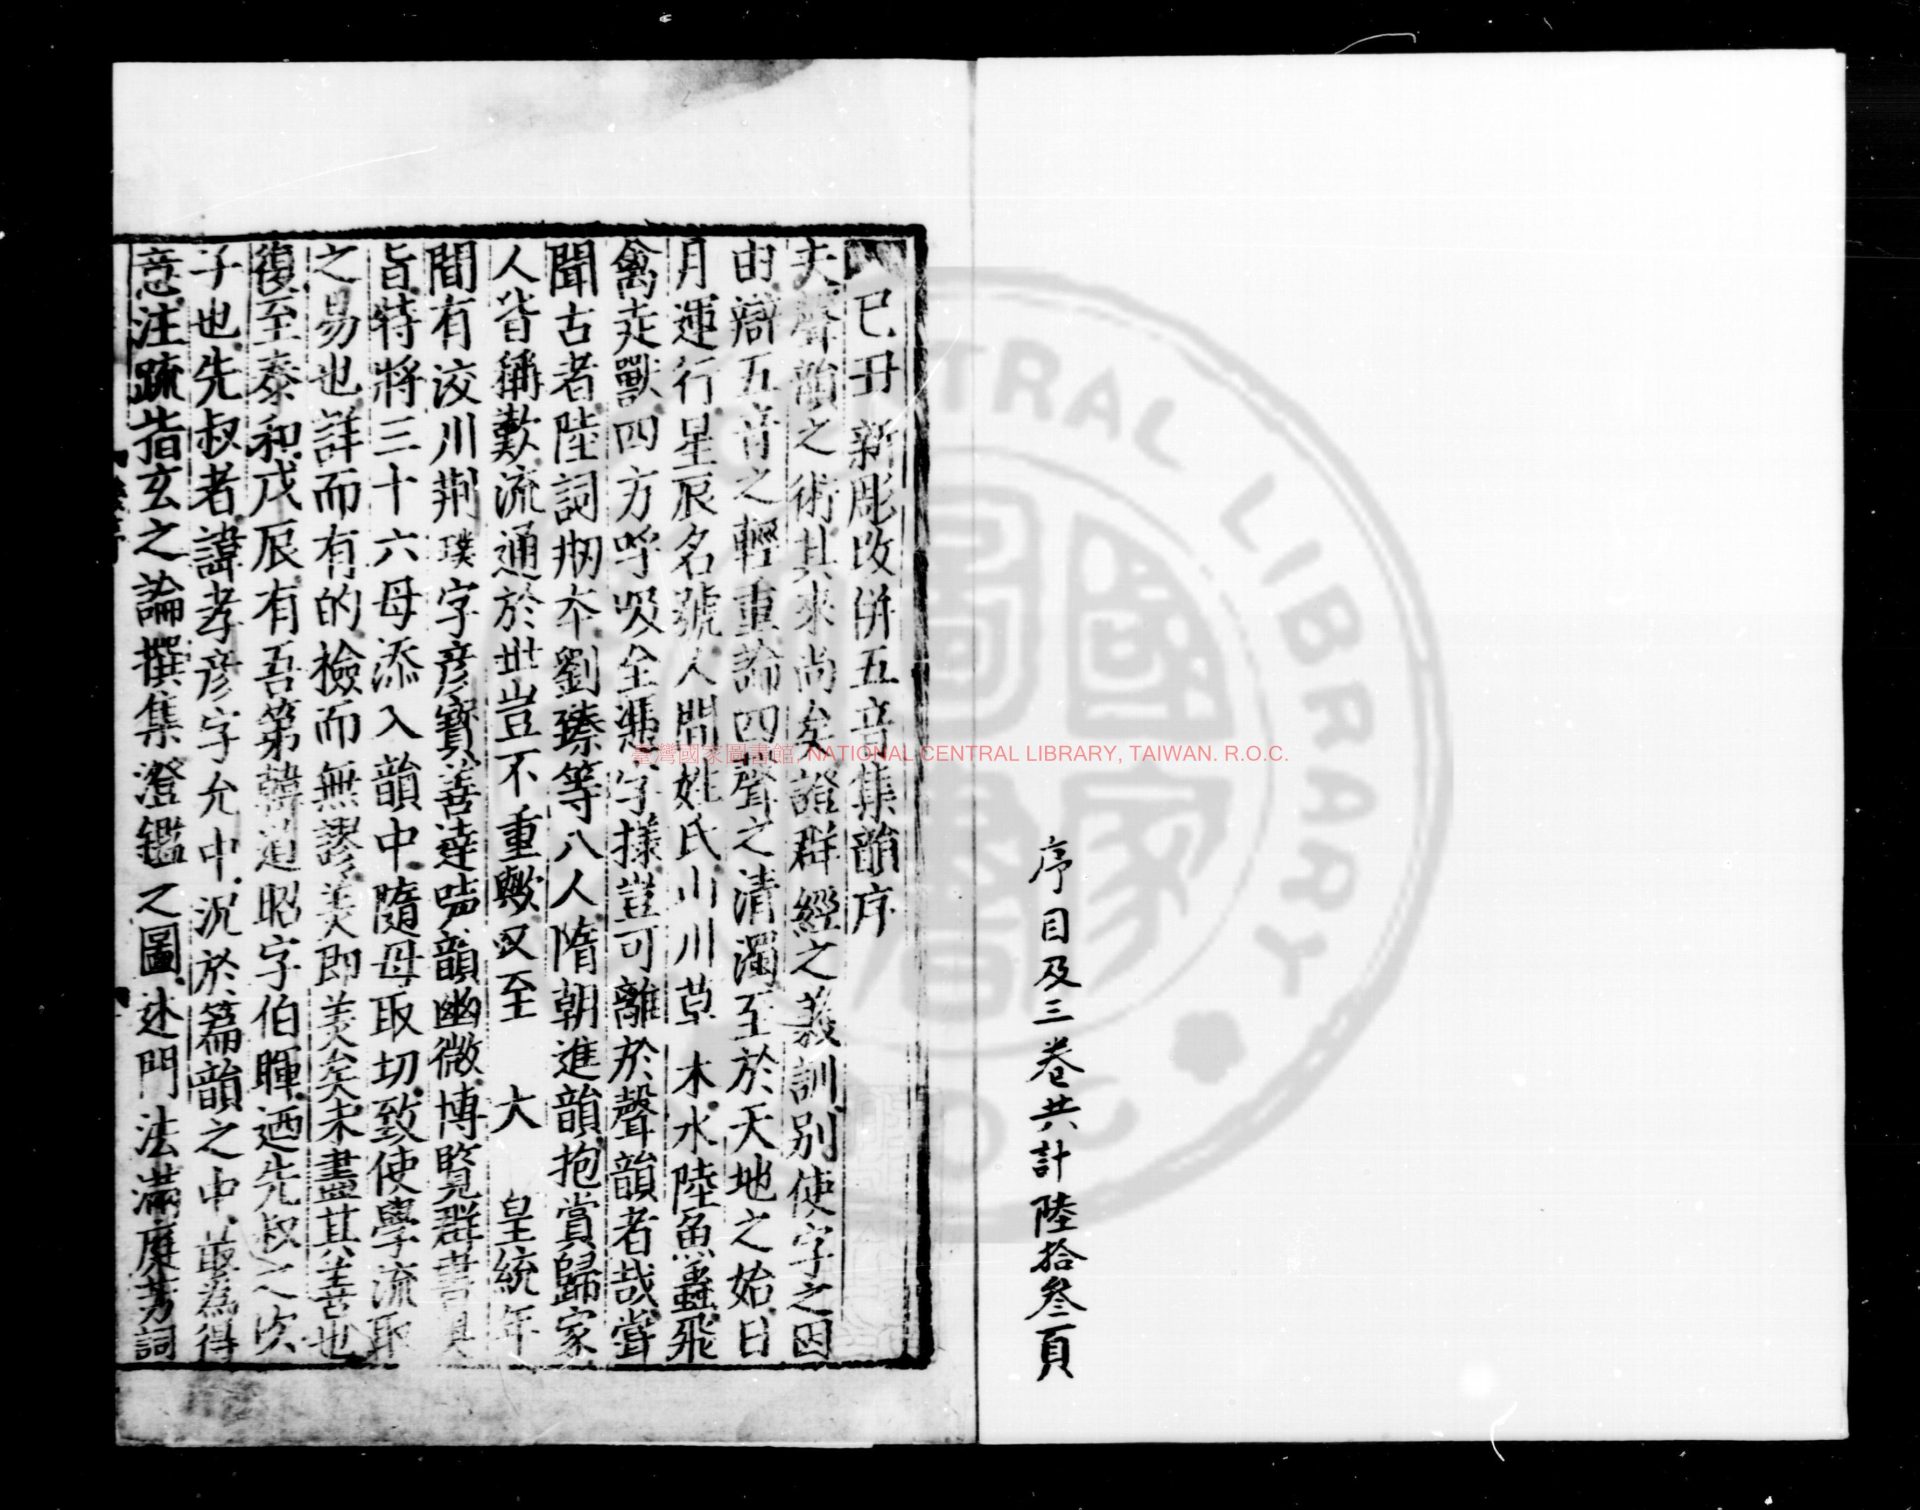 序目及三卷共計陸拾叁頁
己丑新彫改併五音集韻序
夫聲韻之術其來尚矣證群經之義訓別使字之因
由辯五音之輕重論四聲之清濁至於天地之始日
月運行星辰名號人間姓氏山川草木水陸魚蟲飛
禽走獸四方呼吸全憑字樣豈可離於聲韻者哉嘗
聞古者陸詞刱夲劉臻等八人隋朝進韻抱賞歸家
人皆稱歎流通於世豈不重歟又至 大 皇統年
間有洨川荆璞字彦寳善達聲韻幽微博覽群書奥
旨特將三十六母添入韻中隨母取切致使學流取
之易也詳而有的檢而無謬美即美矣未盡其善也
復至泰和戊辰有吾弟韓道昭字伯暉迺先叔之次
子也先叔者諱孝彦字允中沉於篇韻之中最為得
意注疏指玄之論撰集澄鑑之圖述門法滿庭芳詞
臺灣國家圖書館, NATIONAL CENTRAL LIBRARY, TAIWAN. R.O.C.
CENTRAL LIBRARY
R.O.C.